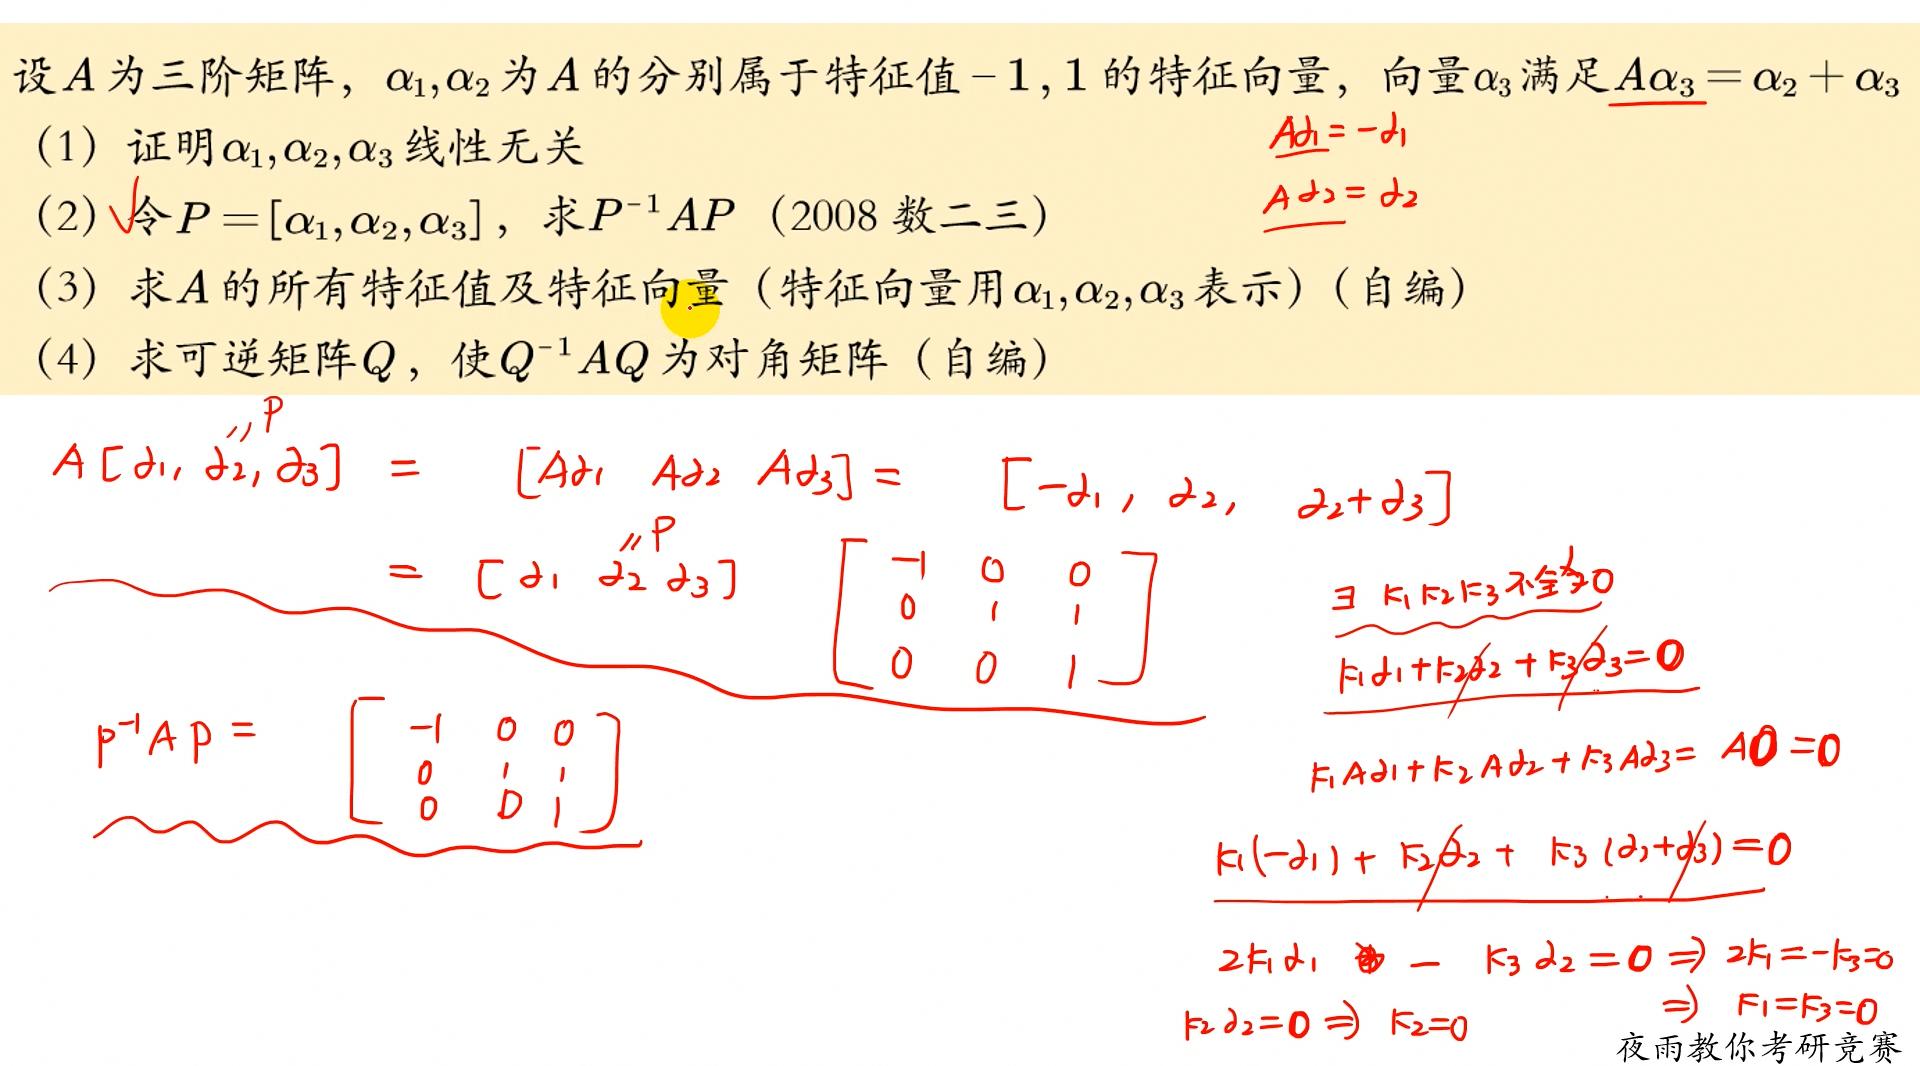 设A为三阶矩阵，α₁,α₂为A的分别属于特征值－1,1的特征向量，向量α₃满足Aα₃＝α₂＋α₃
（1）证明α₁,α₂,α₃线性无关
（2）令P＝[α₁,α₂,α₃]，求P⁻¹AP（2008数二三）
（3）求A的所有特征值及特征向量（特征向量用α₁,α₂,α₃表示）（自编）
（4）求可逆矩阵Q，使Q⁻¹AQ为对角矩阵（自编）
Aα₁=-α₁
Aα₂=α₂
P
A[α₁, α₂, α₃] = [Aα₁ Aα₂ Aα₃] = [-α₁, α₂, α₂+α₃]
P
= [α₁ α₂ α₃]
-1 0 0
0 1 1
0 0 1
P⁻¹AP =
-1 0 0
0 1 1
0 0 1
∃ k₁k₂k₃不全为0
k₁α₁+k₂α₂+k₃α₃=0
k₁Aα₁+k₂Aα₂+k₃Aα₃= A0=0
k₁(-α₁)+k₂α₂+k₃(α₂+α₃)=0
2k₁α₁ - k₃α₂=0⇒2k₁=-k₃=0
⇒ k₁=k₃=0
k₂α₂=0⇒k₂=0
夜雨教你考研竞赛